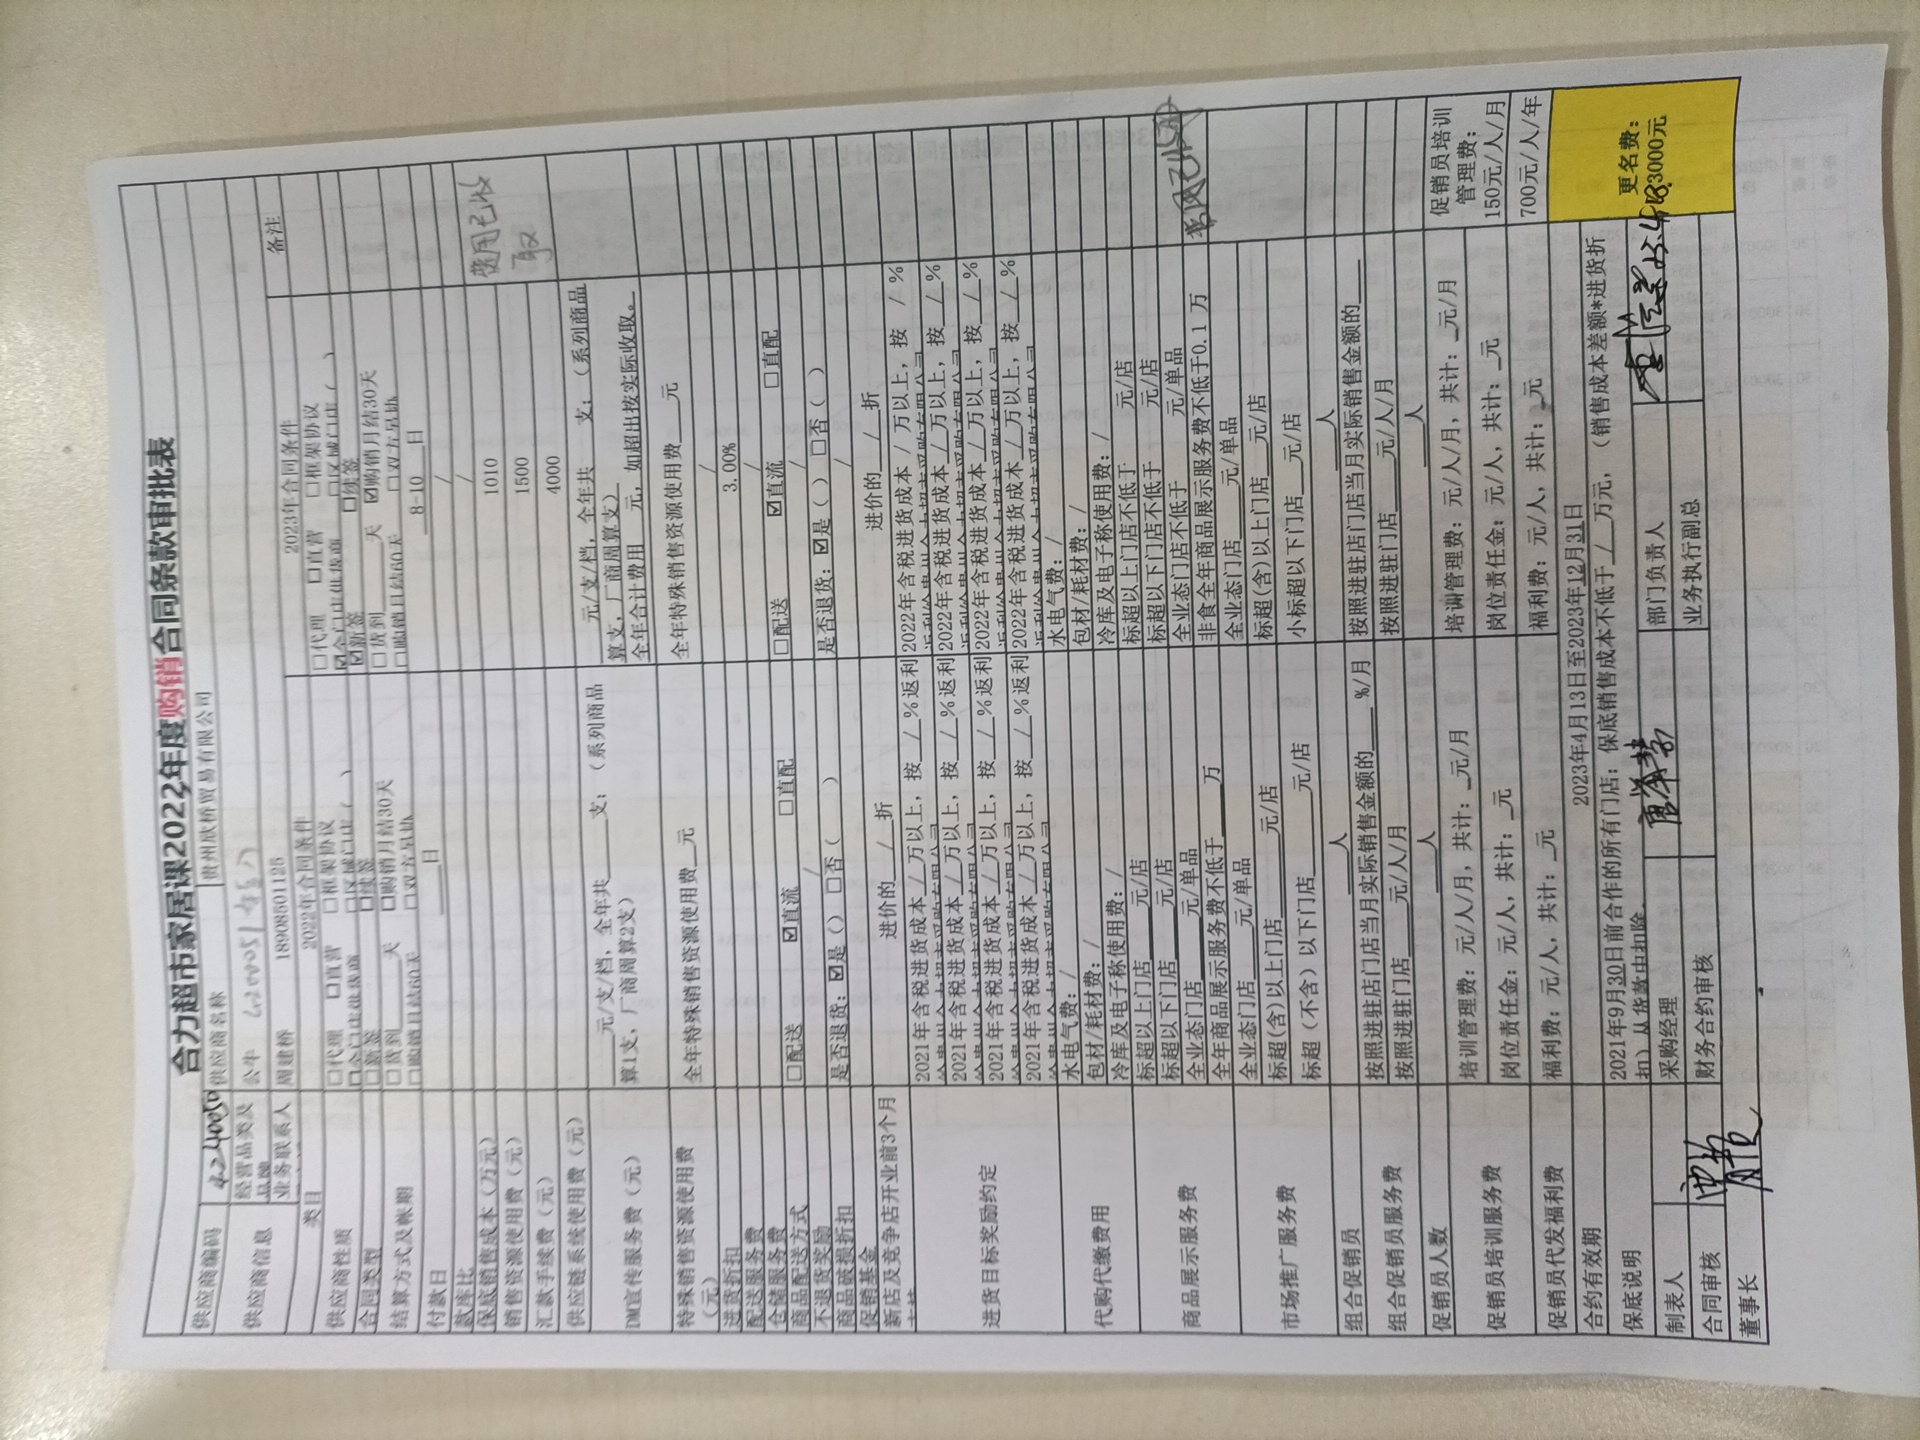 合力超市家居课2022年度购销合同条款审批表
供应商编码 供应商名称 贵州欣桥贸易有限公司
供应商信息 经营品类及品牌 公牛
业务联系人 周建桥 18908501125
类目 2022年合同条件 2023年合同条件 备注
供应商性质 □代理 □直营 □框架协议 □代理 □直营 □框架协议
□全门店供货商 □区域门店( ) ☑全门店供货商 □区域门店( )
合同类型 □新签 □续签 ☑新签 □续签
结算方式及帐期 □货到 天 □购销月结30天 □货到 天 ☑购销月结30天
□购销月结60天 □双方另协 □购销月结60天 □双方另协
付款日 日 8-10 日
款库比 /
保底销售成本(万元) /
销售资源使用费(元) 1010 费用已收取
汇款手续费(元) 1500
供应链系统使用费(元) 4000
DM宣传服务费(元) 元/支/档,全年共 支;(系列商品算1支,厂商周算2支) 元/支/档,全年共 支;(系列商品算 支,厂商周算 支)
全年合计费用 元,如超出按实际收取。
特殊销售资源使用费(元) 全年特殊销售资源使用费 元 全年特殊销售资源使用费 元
进货折扣 /
配送服务费 3.00%
仓储服务费 /
商品配送方式 □配送 ☑直流 □直配 □配送 ☑直流 □直配
不退货奖励 / /
商品破损折扣 是否退货:☑是() □否( ) 是否退货:☑是( ) □否( )
促销基金 /
新店及竞争店开业前3个月 进价的 / 折 进价的 / 折
进货目标奖励约定 2021年含税进货成本 / 万以上,按 / %返利 2022年含税进货成本 / 万以上,按 / %
2021年含税进货成本 / 万以上,按 / %返利 2022年含税进货成本 / 万以上,按 / %
2021年含税进货成本 / 万以上,按 / %返利 2022年含税进货成本 / 万以上,按 / %
2021年含税进货成本 / 万以上,按 / %返利 2022年含税进货成本 / 万以上,按 / %
代购代缴费用 水电气费:/ 水电气费:/
包材/耗材费:/ 包材/耗材费:/
冷库及电子称使用费:/ 冷库及电子称使用费:/
商品展示服务费 标超以上门店 元/店 标超以上门店不低于 元/店
标超以下门店 元/店 标超以下门店不低于 元/店
全业态门店 元/单品 全业态门店不低于 元/单品
全年商品展示服务费不低于 万 非食全年商品展示服务费不低于0.1 万
市场推广服务费 全业态门店 元/单品 全业态门店 元/单品
标超(含)以上门店 元/店 标超(含)以上门店 元/店
标超(不含)以下门店 元/店 小标超以下门店 元/店
组合促销员 人 人
组合促销员服务费 按照进驻店门店当月实际销售金额的 %/月 按照进驻店门店当月实际销售金额的
按照进驻门店 元/人/月 按照进驻门店 元/人/月
促销员人数 人 人
促销员培训服务费 培训管理费:元/人/月,共计: 元/月 培训管理费:元/人/月,共计: 元/月 促销员培训管理费:150元/人/月
岗位责任金:元/人,共计: 元 岗位责任金:元/人,共计: 元
促销员代发福利费 福利费:元/人,共计: 元 福利费:元/人,共计: 元 700元/人/年
合约有效期 2023年4月13日至2023年12月31日 更名费:3000元
保底说明 2021年9月30日前合作的所有门店:保底销售成本不低于 / 万元,(销售成本差额*进货折扣)从货款中扣除。
制表人 采购经理 部门负责人
合同审核 财务合约审核 业务执行副总
董事长